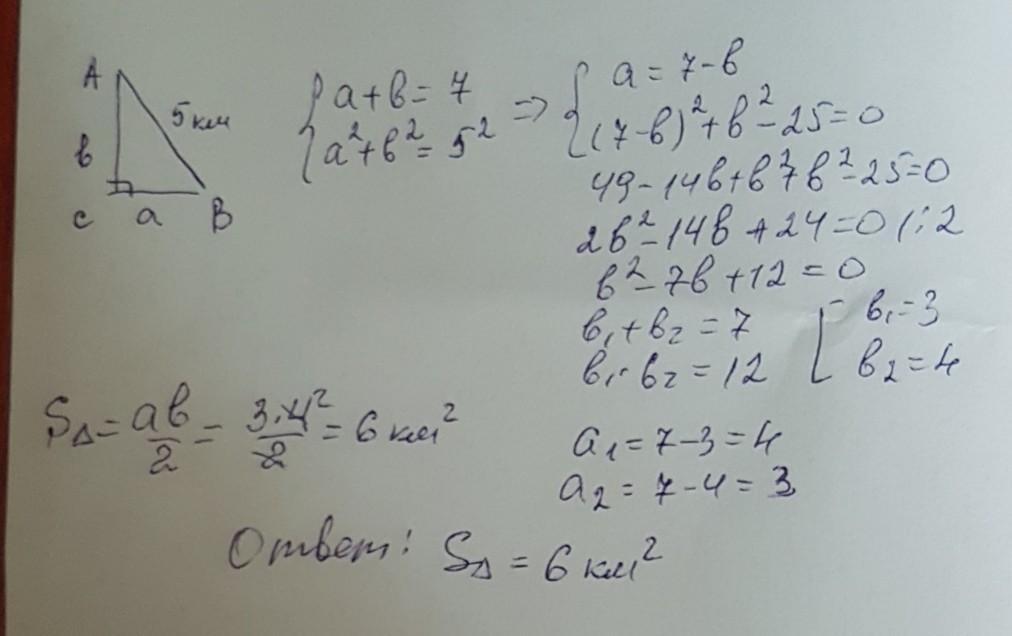 A
5км
в
с a B
{a+в=7
a²+в²=5² => {a=7-в
(7-в)²+в²-25=0
49-14в+в²+в²-25=0
2в²-14в+24=0 /:2
в²-7в+12=0
в₁+в₂=7
в₁·в₂=12
[в₁=3
в₂=4
a₁=7-3=4
a₂=7-4=3
S△=aв/2=3·4²/2=6км²
Ответ: S△=6км²